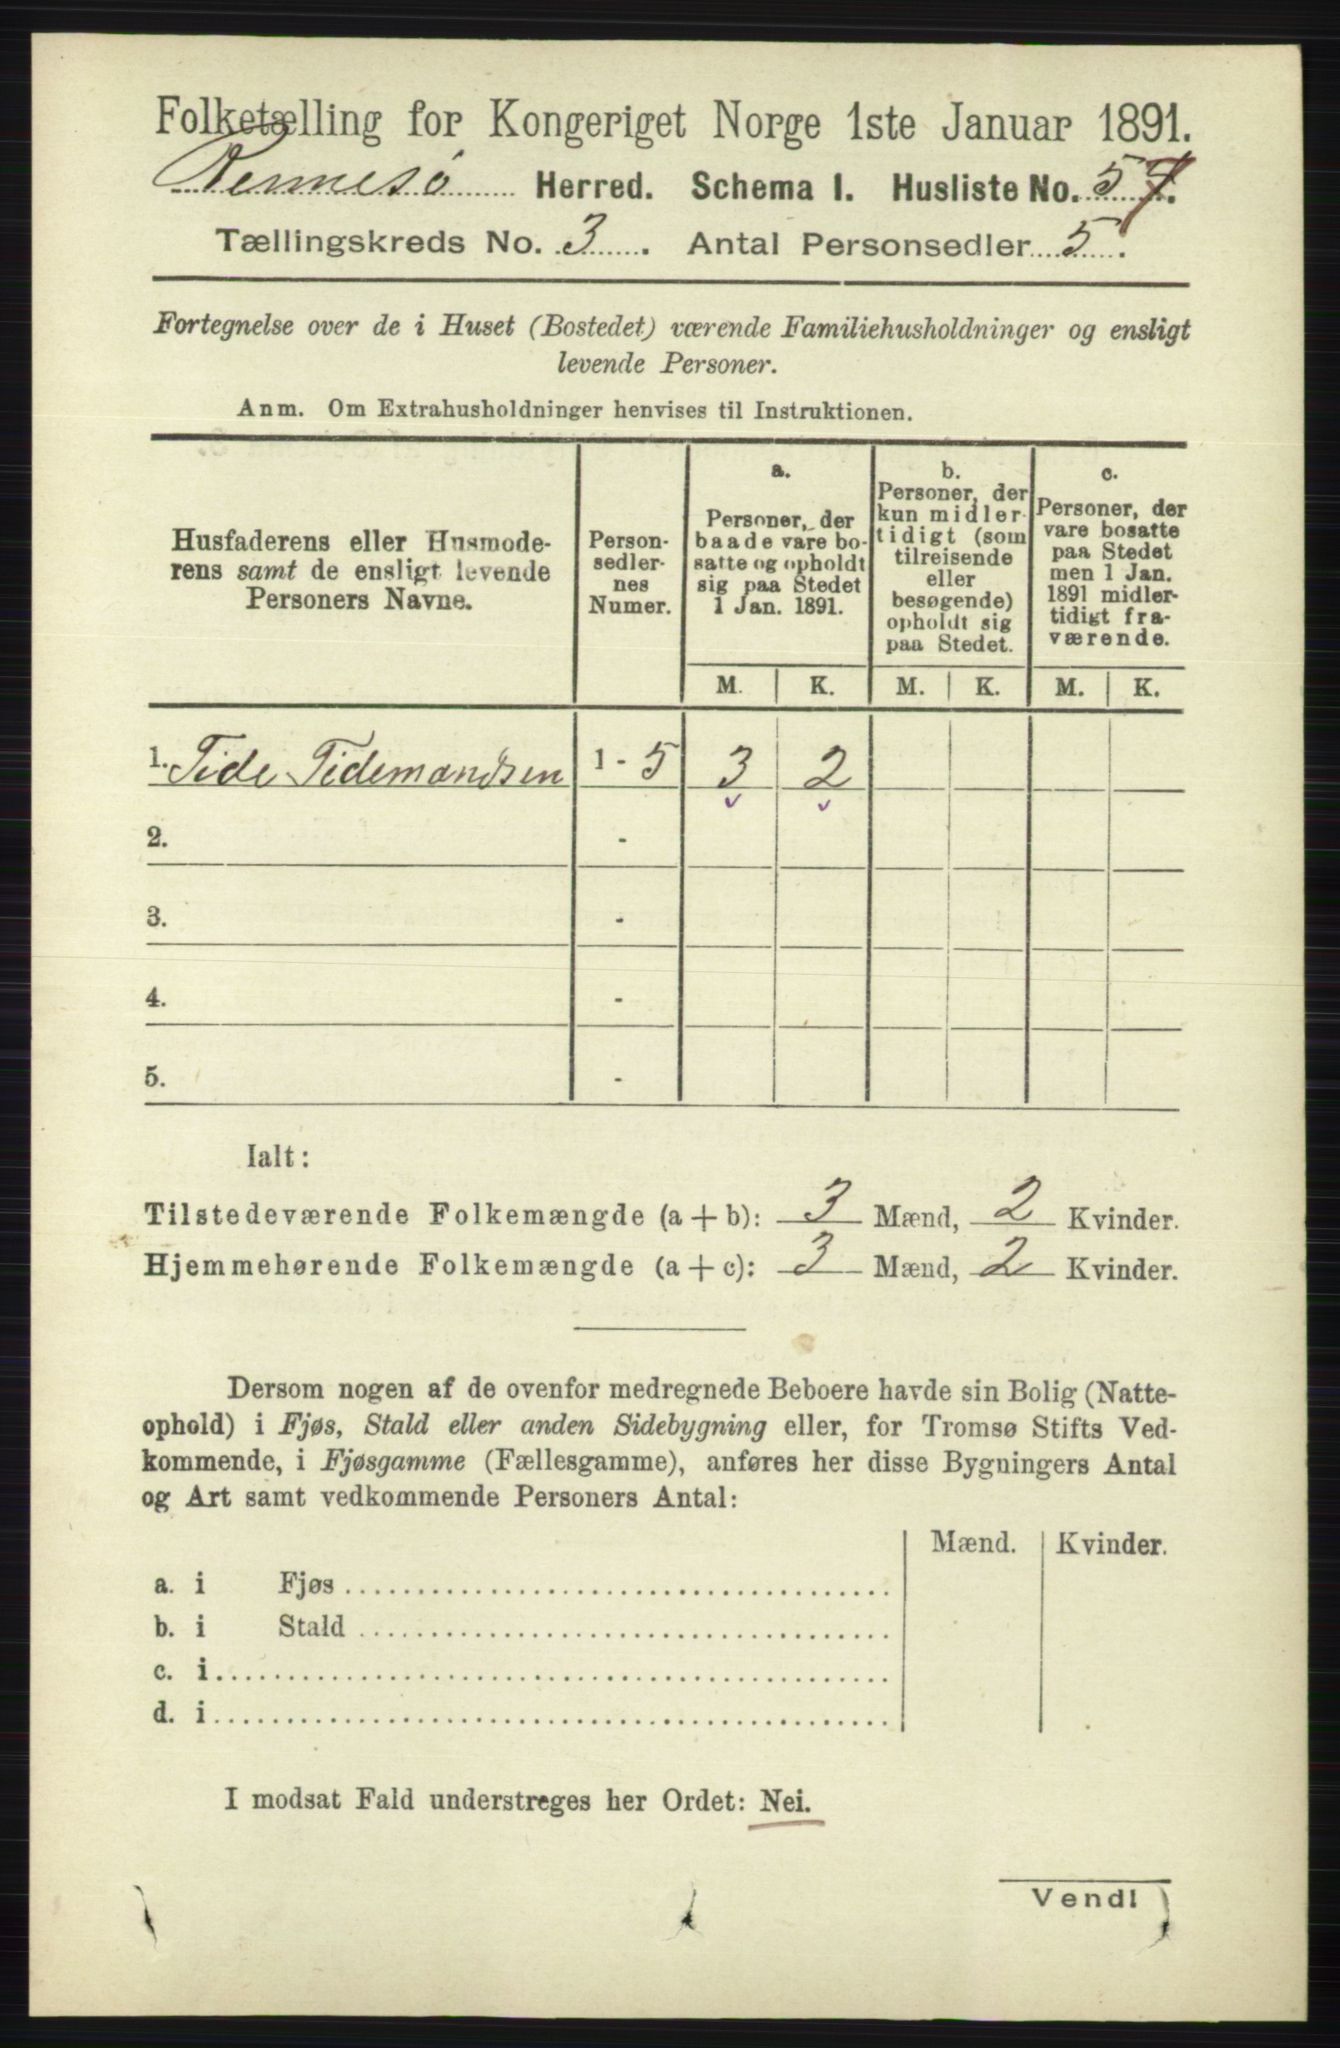 Folketælling for Kongeriget Norge 1ste Januar 1891.
Rennesø Herred. Schema I. Husliste No. 57.
Tællingskreds No. 3. Antal Personsedler 5.
Fortegnelse over de i Huset (Bostedet) værende Familiehusholdninger og ensligt
levende Personer.
Anm. Om Extrahusholdninger henvises til Instruktionen.
Husfaderens eller Husmode-
rens samt de ensligt levende
Personers Navne.
Person-
sedler-
nes
Numer.
a.
Personer, der
baade vare bo-
satte og opholdt
sig paa Stedet
1 Jan. 1891.
b.
Personer, der
kun midler-
tidigt (som
tilreisende
eller
besøgende)
opholdt sig
paa Stedet.
c.
Personer, der
vare bosatte
paa Stedet
men 1 Jan.
1891 midler-
tidigt fra-
værende.
M. K. M. K. M. K.
1. Tide Tidemandsen 1 - 5 3 2
2. -
3. -
4. -
5. -
Ialt:
Tilstedeværende Folkemængde (a + b): 3 Mænd, 2 Kvinder.
Hjemmehørende Folkemængde (a + c): 3 Mænd, 2 Kvinder.
Dersom nogen af de ovenfor medregnede Beboere havde sin Bolig (Natte-
ophold) i Fjøs, Stald eller anden Sidebygning eller, for Tromsø Stifts Ved-
kommende, i Fjøsgamme (Fællesgamme), anføres her disse Bygningers Antal
og Art samt vedkommende Personers Antal:
Mænd. Kvinder.
a. i Fjøs
b. i Stald
c. i
d. i
I modsat Fald understreges her Ordet: Nei.
Vend!